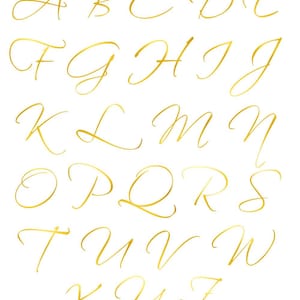 A B C D E
F G H I J
K L M N
O P Q R S
T U V W
X Y Z